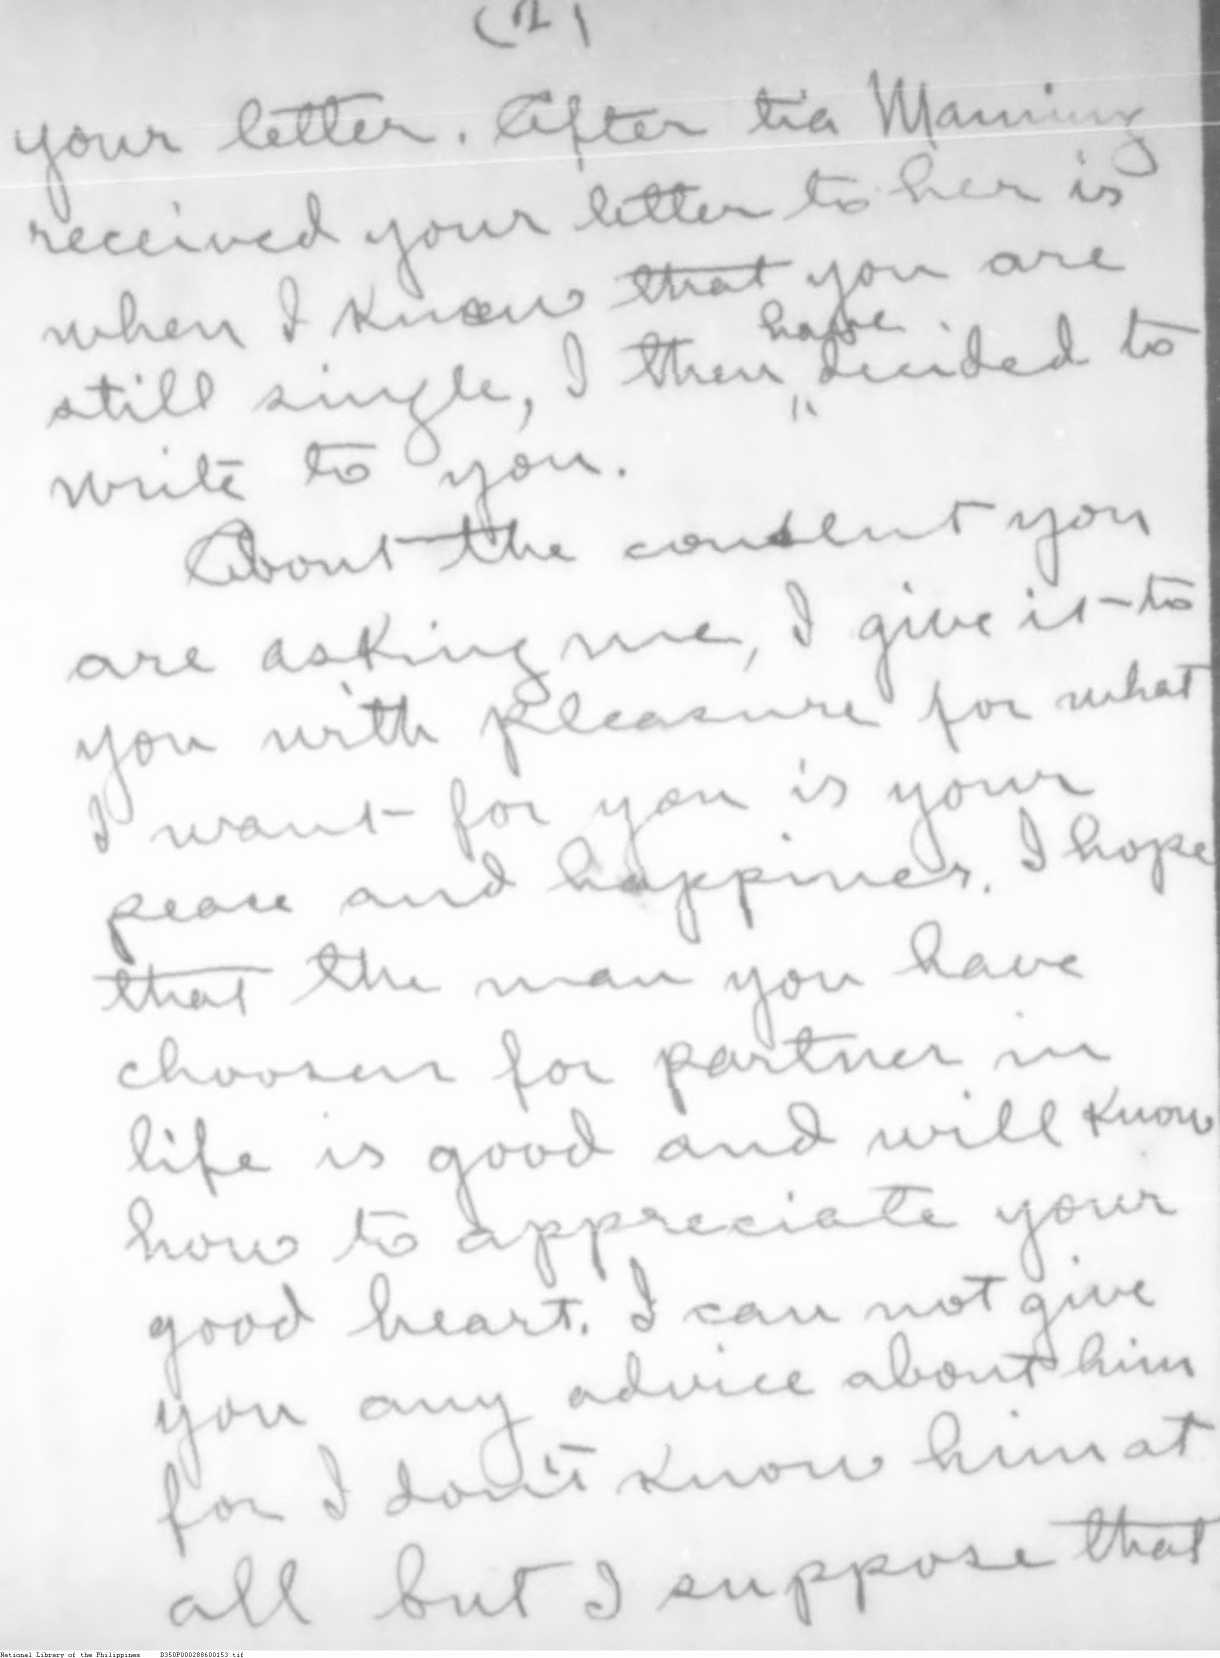 (2)
your letter. After tia Maming
received your letter to her is
when I know that you are
still single, I then have decided to
write to you.
About the consent you
are asking me, I give it to
you with pleasure for what
I want for you is your
peace and happines. I hope
that the man you have
choosen for partner in
life is good and will know
how to appreciate your
good heart. I can not give
you any advice about him
for I don't know him at
all but I suppose that
National Library of the Philippines D350P000288600153.tif